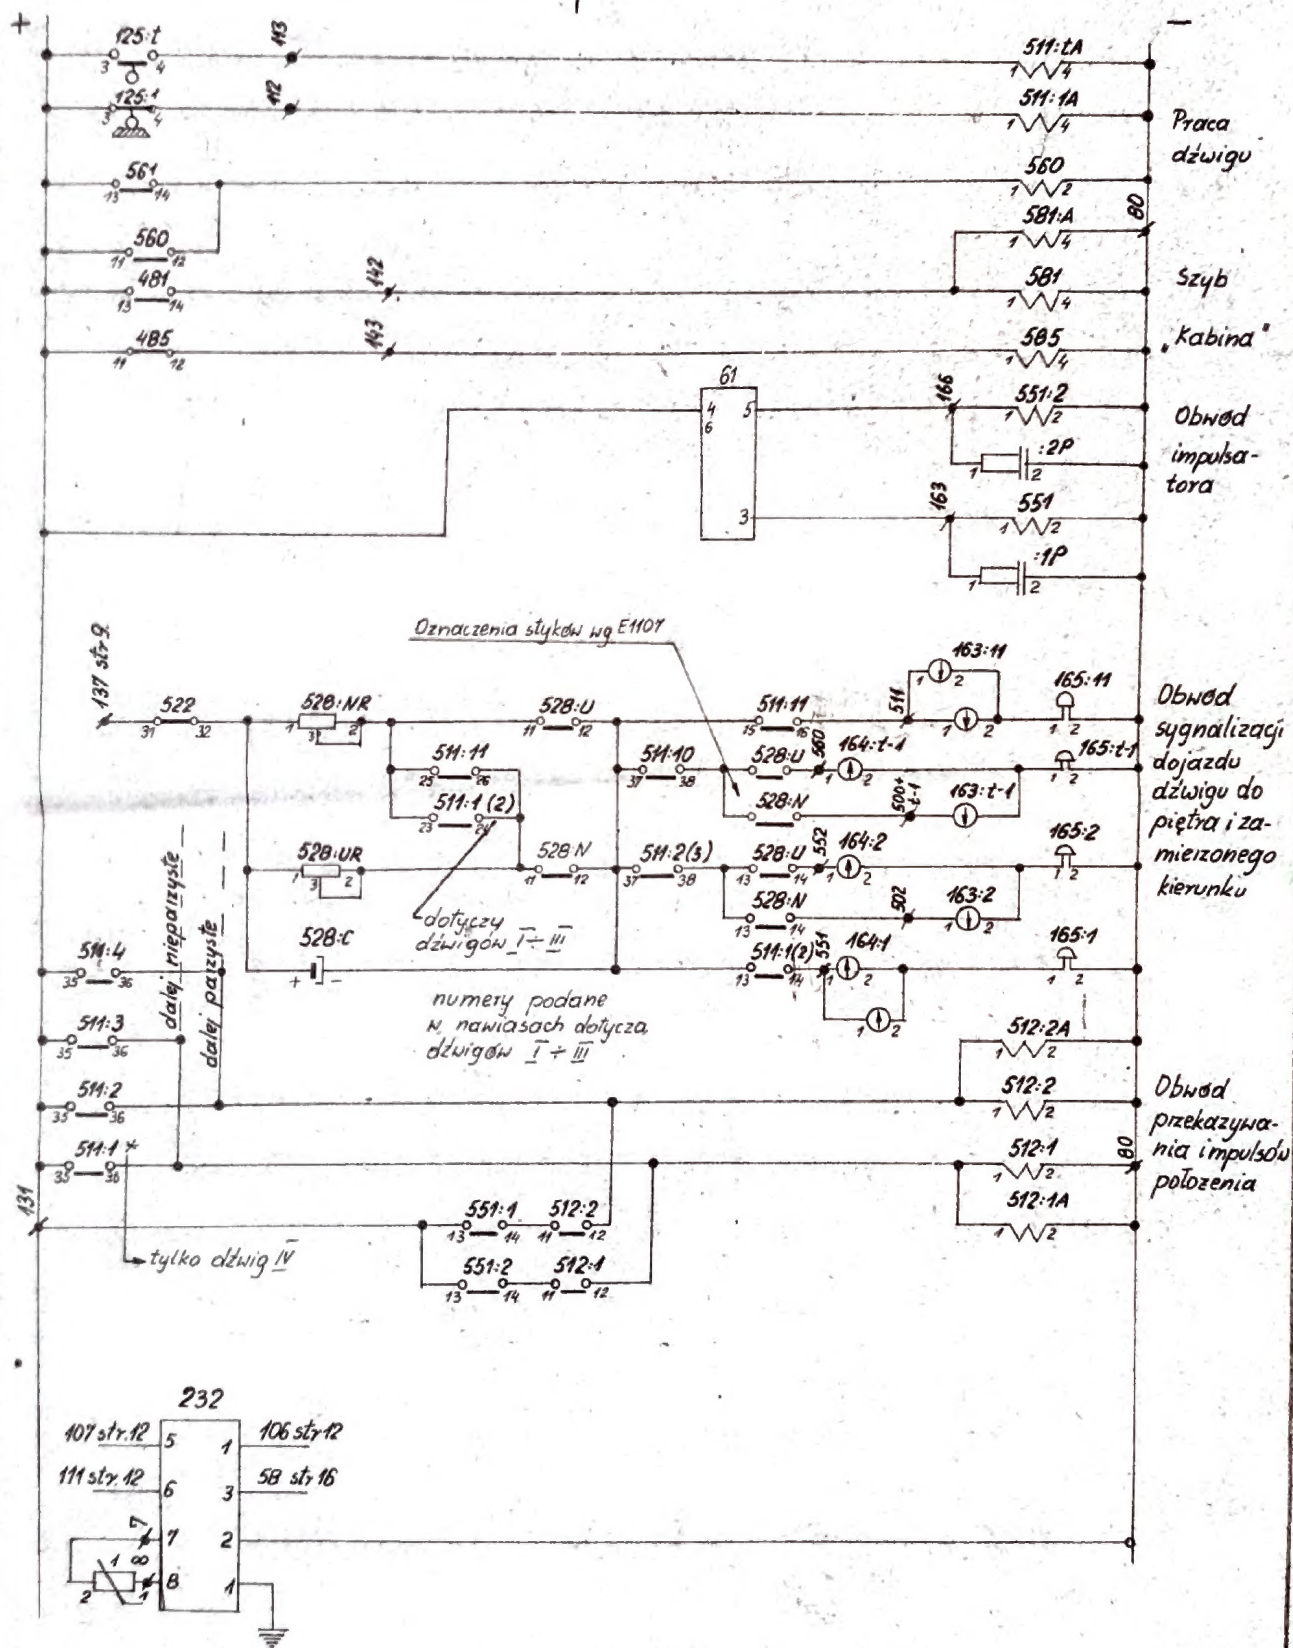 +
−
125:t
3 4
113
511:tA
1 4
125:1
3 4
112
511:1A
1 4
Praca
dźwigu
561
13 14
560
1 2
80
581:A
1 4
560
11 12
481
13 14
142
581
1 4
Szyb
485
11 12
143
585
1 4
"Kabina"
61
4 5
6
3
166
551:2
1 2
:2P
1 2
163
551
1 2
:1P
1 2
Obwód
impulsa-
tora
Oznaczenia styków wg E1107
137 str 9
522
31 32
528:NR
1 3 2
528:U
11 12
511:11
15 16
511
163:11
1 2
1 2
165:11
511:11
25 26
511:10
37 38
528:U
560
164:t-1
1 2
165:t-1
1 2
511:1(2)
23 24
528:N
500+
t-1
163:t-1
528:UR
1 3 2
528:N
11 12
511:2(3)
37 38
528:U
13 14
552
164:2
1 2
165:2
1 2
528:N
13 14
502
163:2
1 2
dotyczy
dźwigów I ÷ III
528:C
+ -
511:1(2)
13 14
551
164:1
1 2
1 2
165:1
1 2
Obwód
sygnalizacji
dojazdu
dźwigu do
piętra i za-
mierzonego
kierunku
numery podane
w nawiasach dotyczą
dźwigów I ÷ III
dalej nieparzyste
dalej parzyste
511:4
35 36
511:3
35 36
512:2A
1 2
511:2
35 36
512:2
1 2
511:1 *
35 36
512:1
1 2
80
512:1A
1 2
Obwód
przekazywa-
nia impulsów
położenia
131
551:1
13 14
512:2
11 12
tylko dźwig IV
551:2
13 14
512:1
11 12
232
107 str.12 5 1 106 str 12
111 str.12 6 3 58 str 16
7 7 2
1 8 8 1
2 1